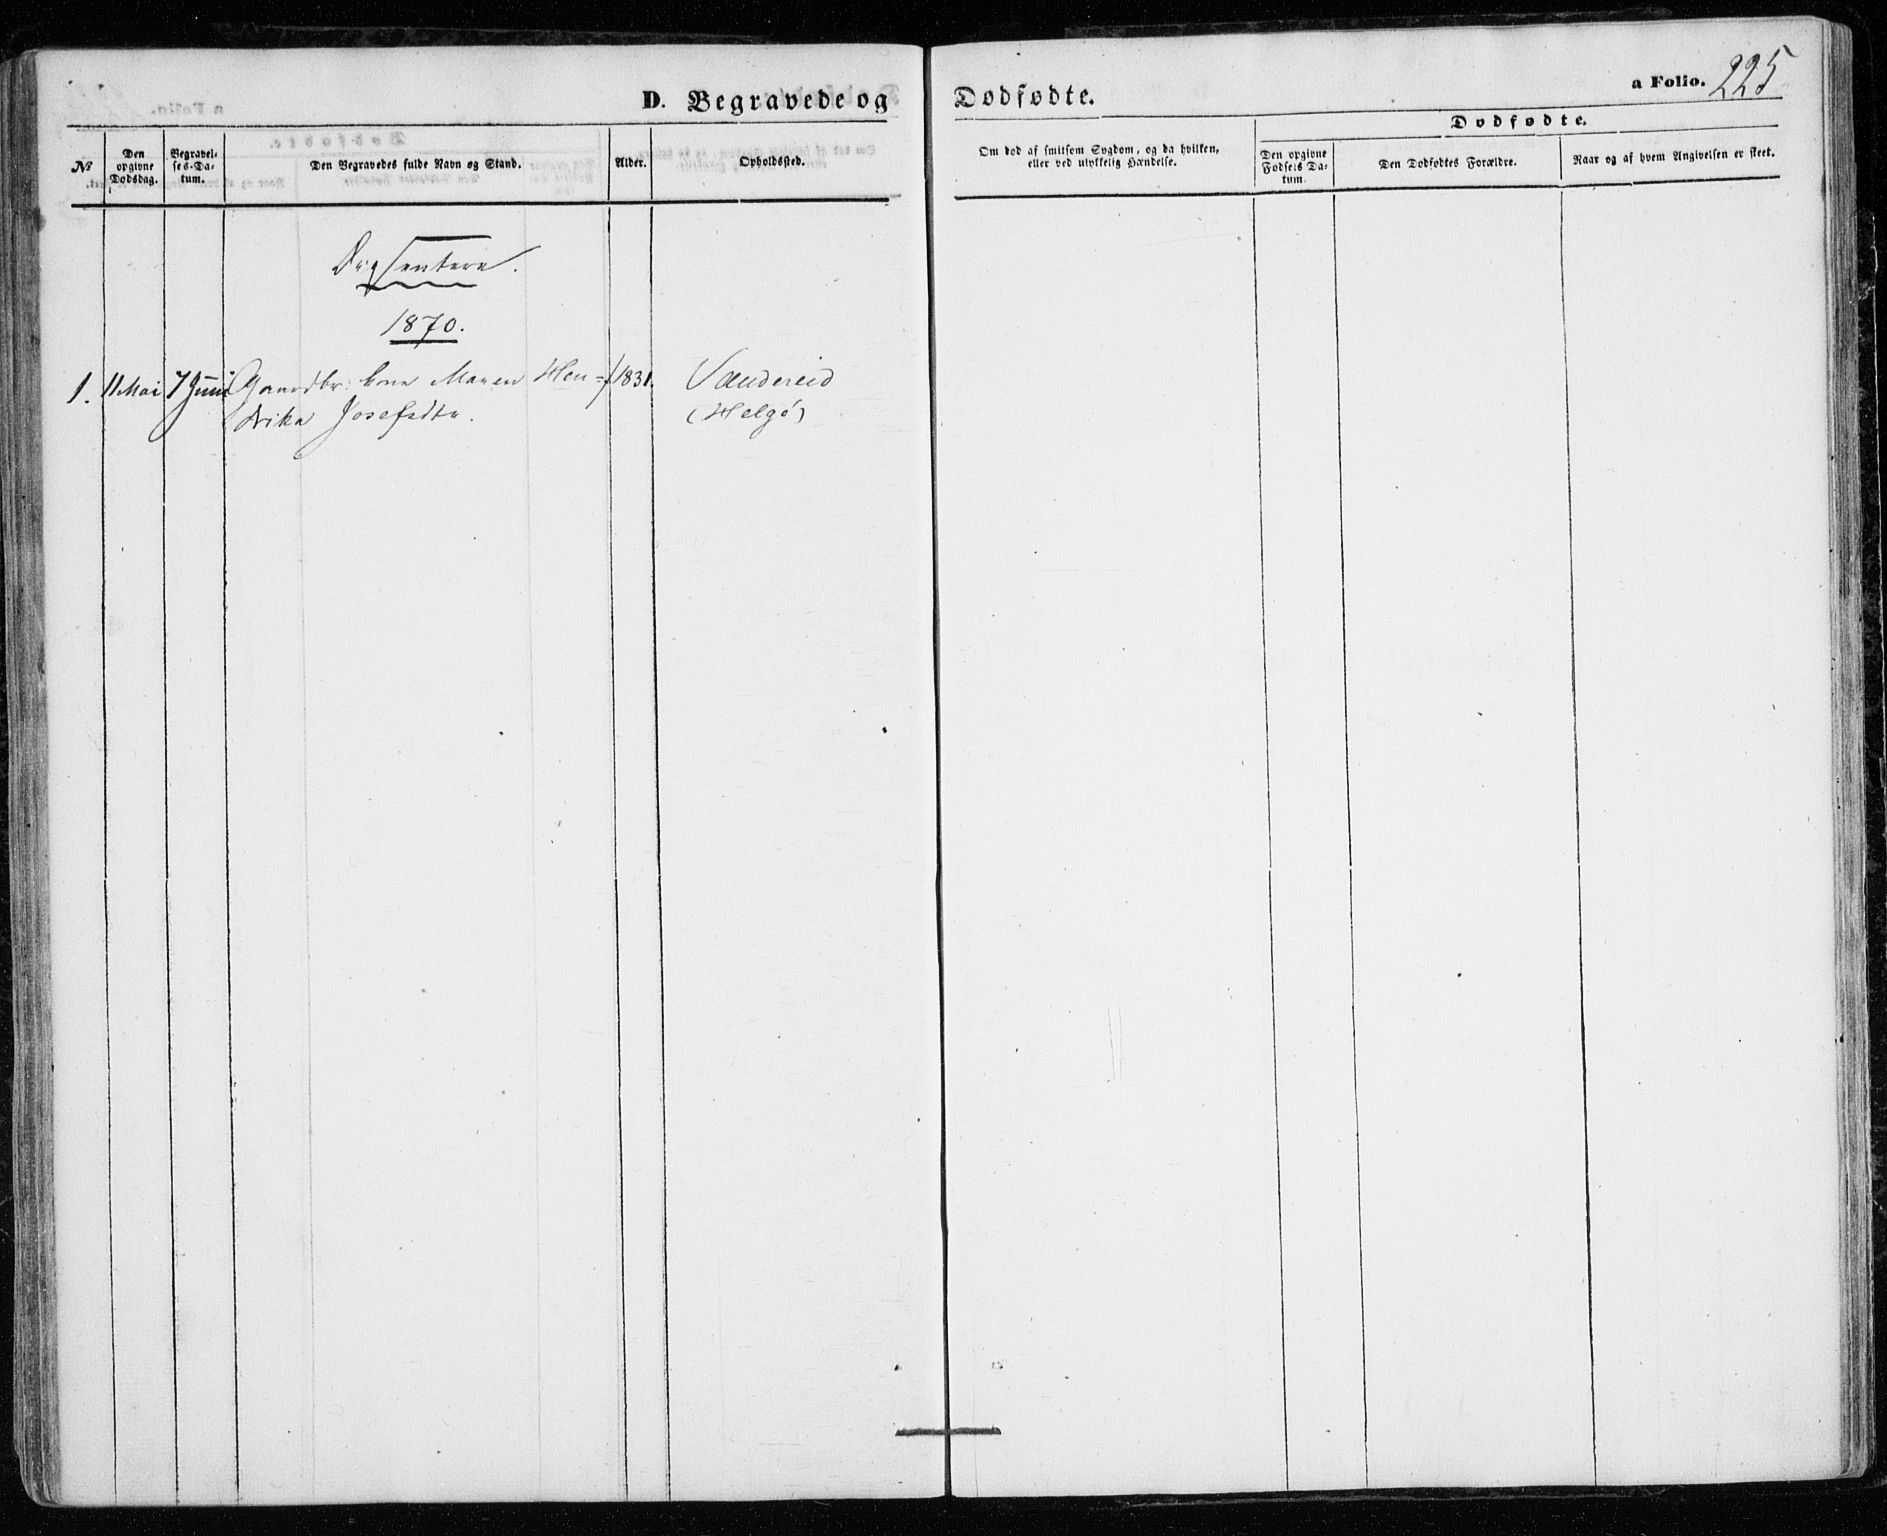 a Folio. 225
D. Begravede og Dødfødte.
Dødfødte.
№
Den opgivne Dødsdag.
Begravelses-Datum.
Den Begravedes fulde Navn og Stand.
Alder.
Opholdssted.
Om død af smitsom Sygdom, og da hvilken,
eller ved ulykkelig Hændelse.
Den opgivne Fødsels Datum.
Den Dødfødtes Forældre.
Naar og af hvem Angivelsen er skeet.
1870.
1. 11 Mai 7 Juni Gaardbr: kone Maren Hen= f 1831.
drika Josefsdtr.
(Helgö)